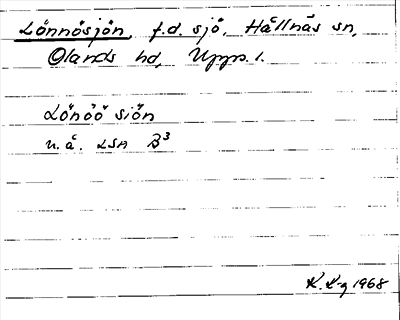 Lönnösjön, f.d. sjö, Hållnäs sn,
Olands hd, Upps. l.
Lönöö siön
u.å. LSA B³
K. L-g 1968